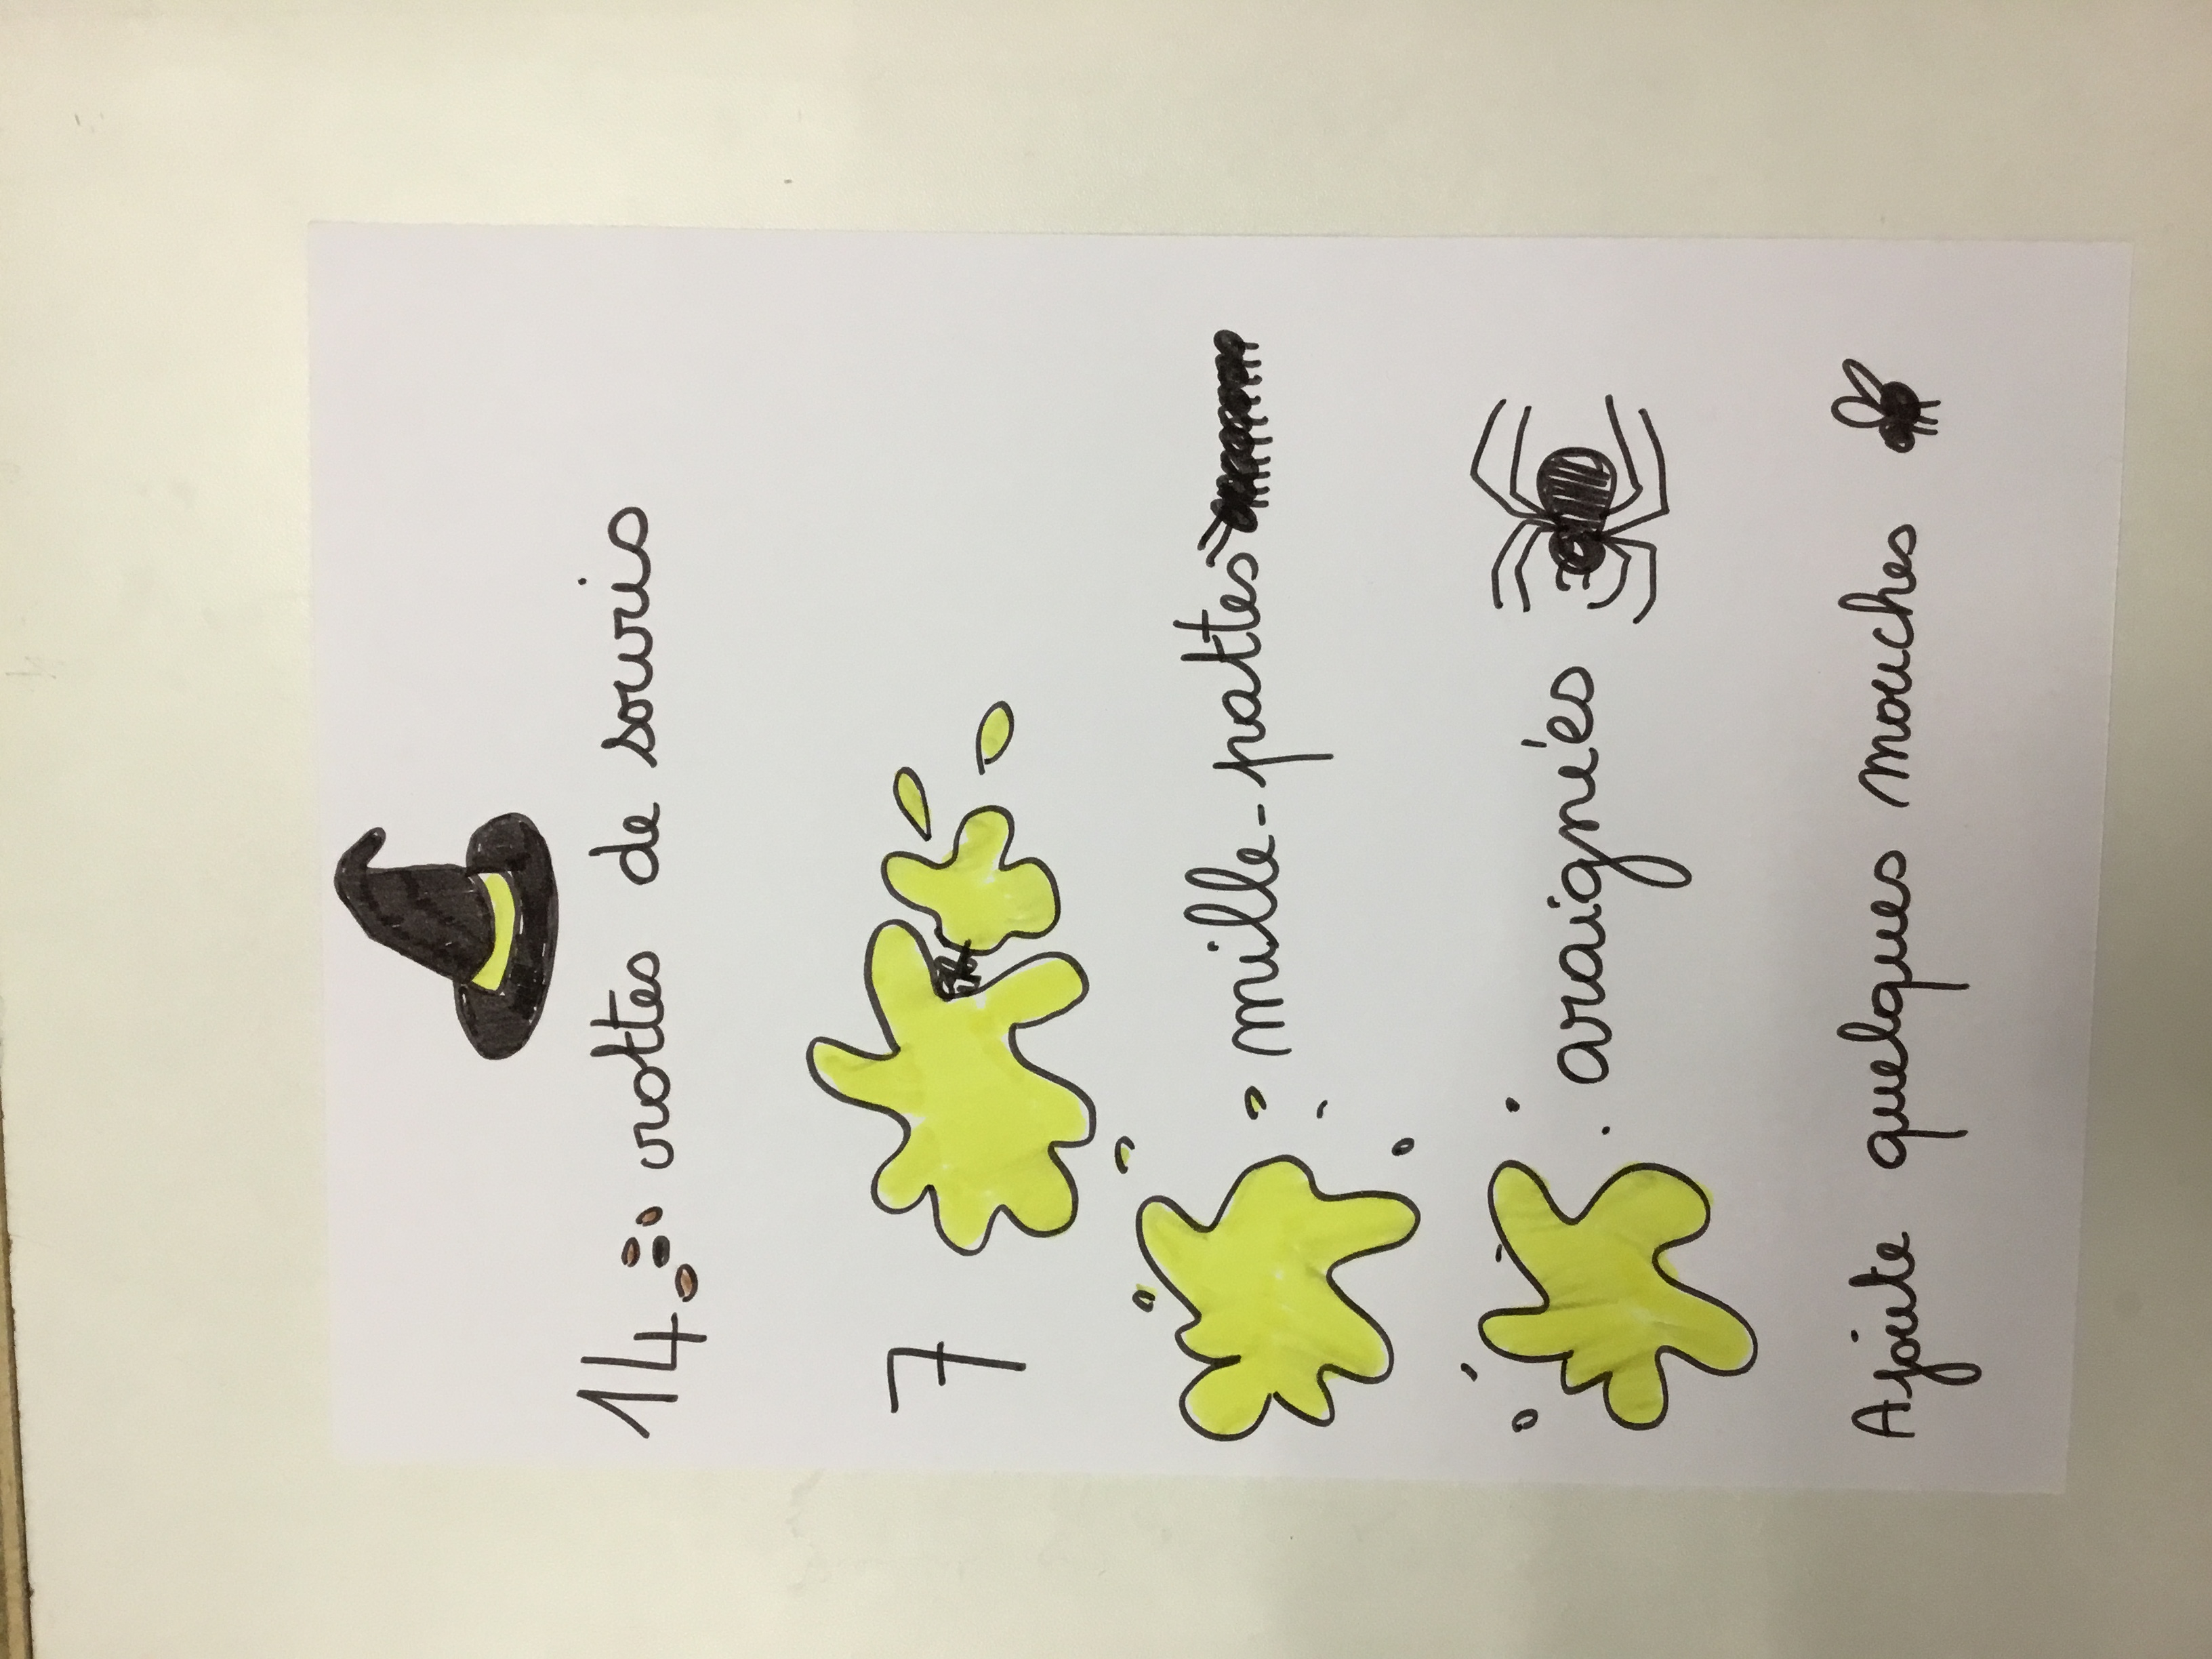 14 crottes de souris
7
mille-pattes
araignées
Ajoute quelques mouches